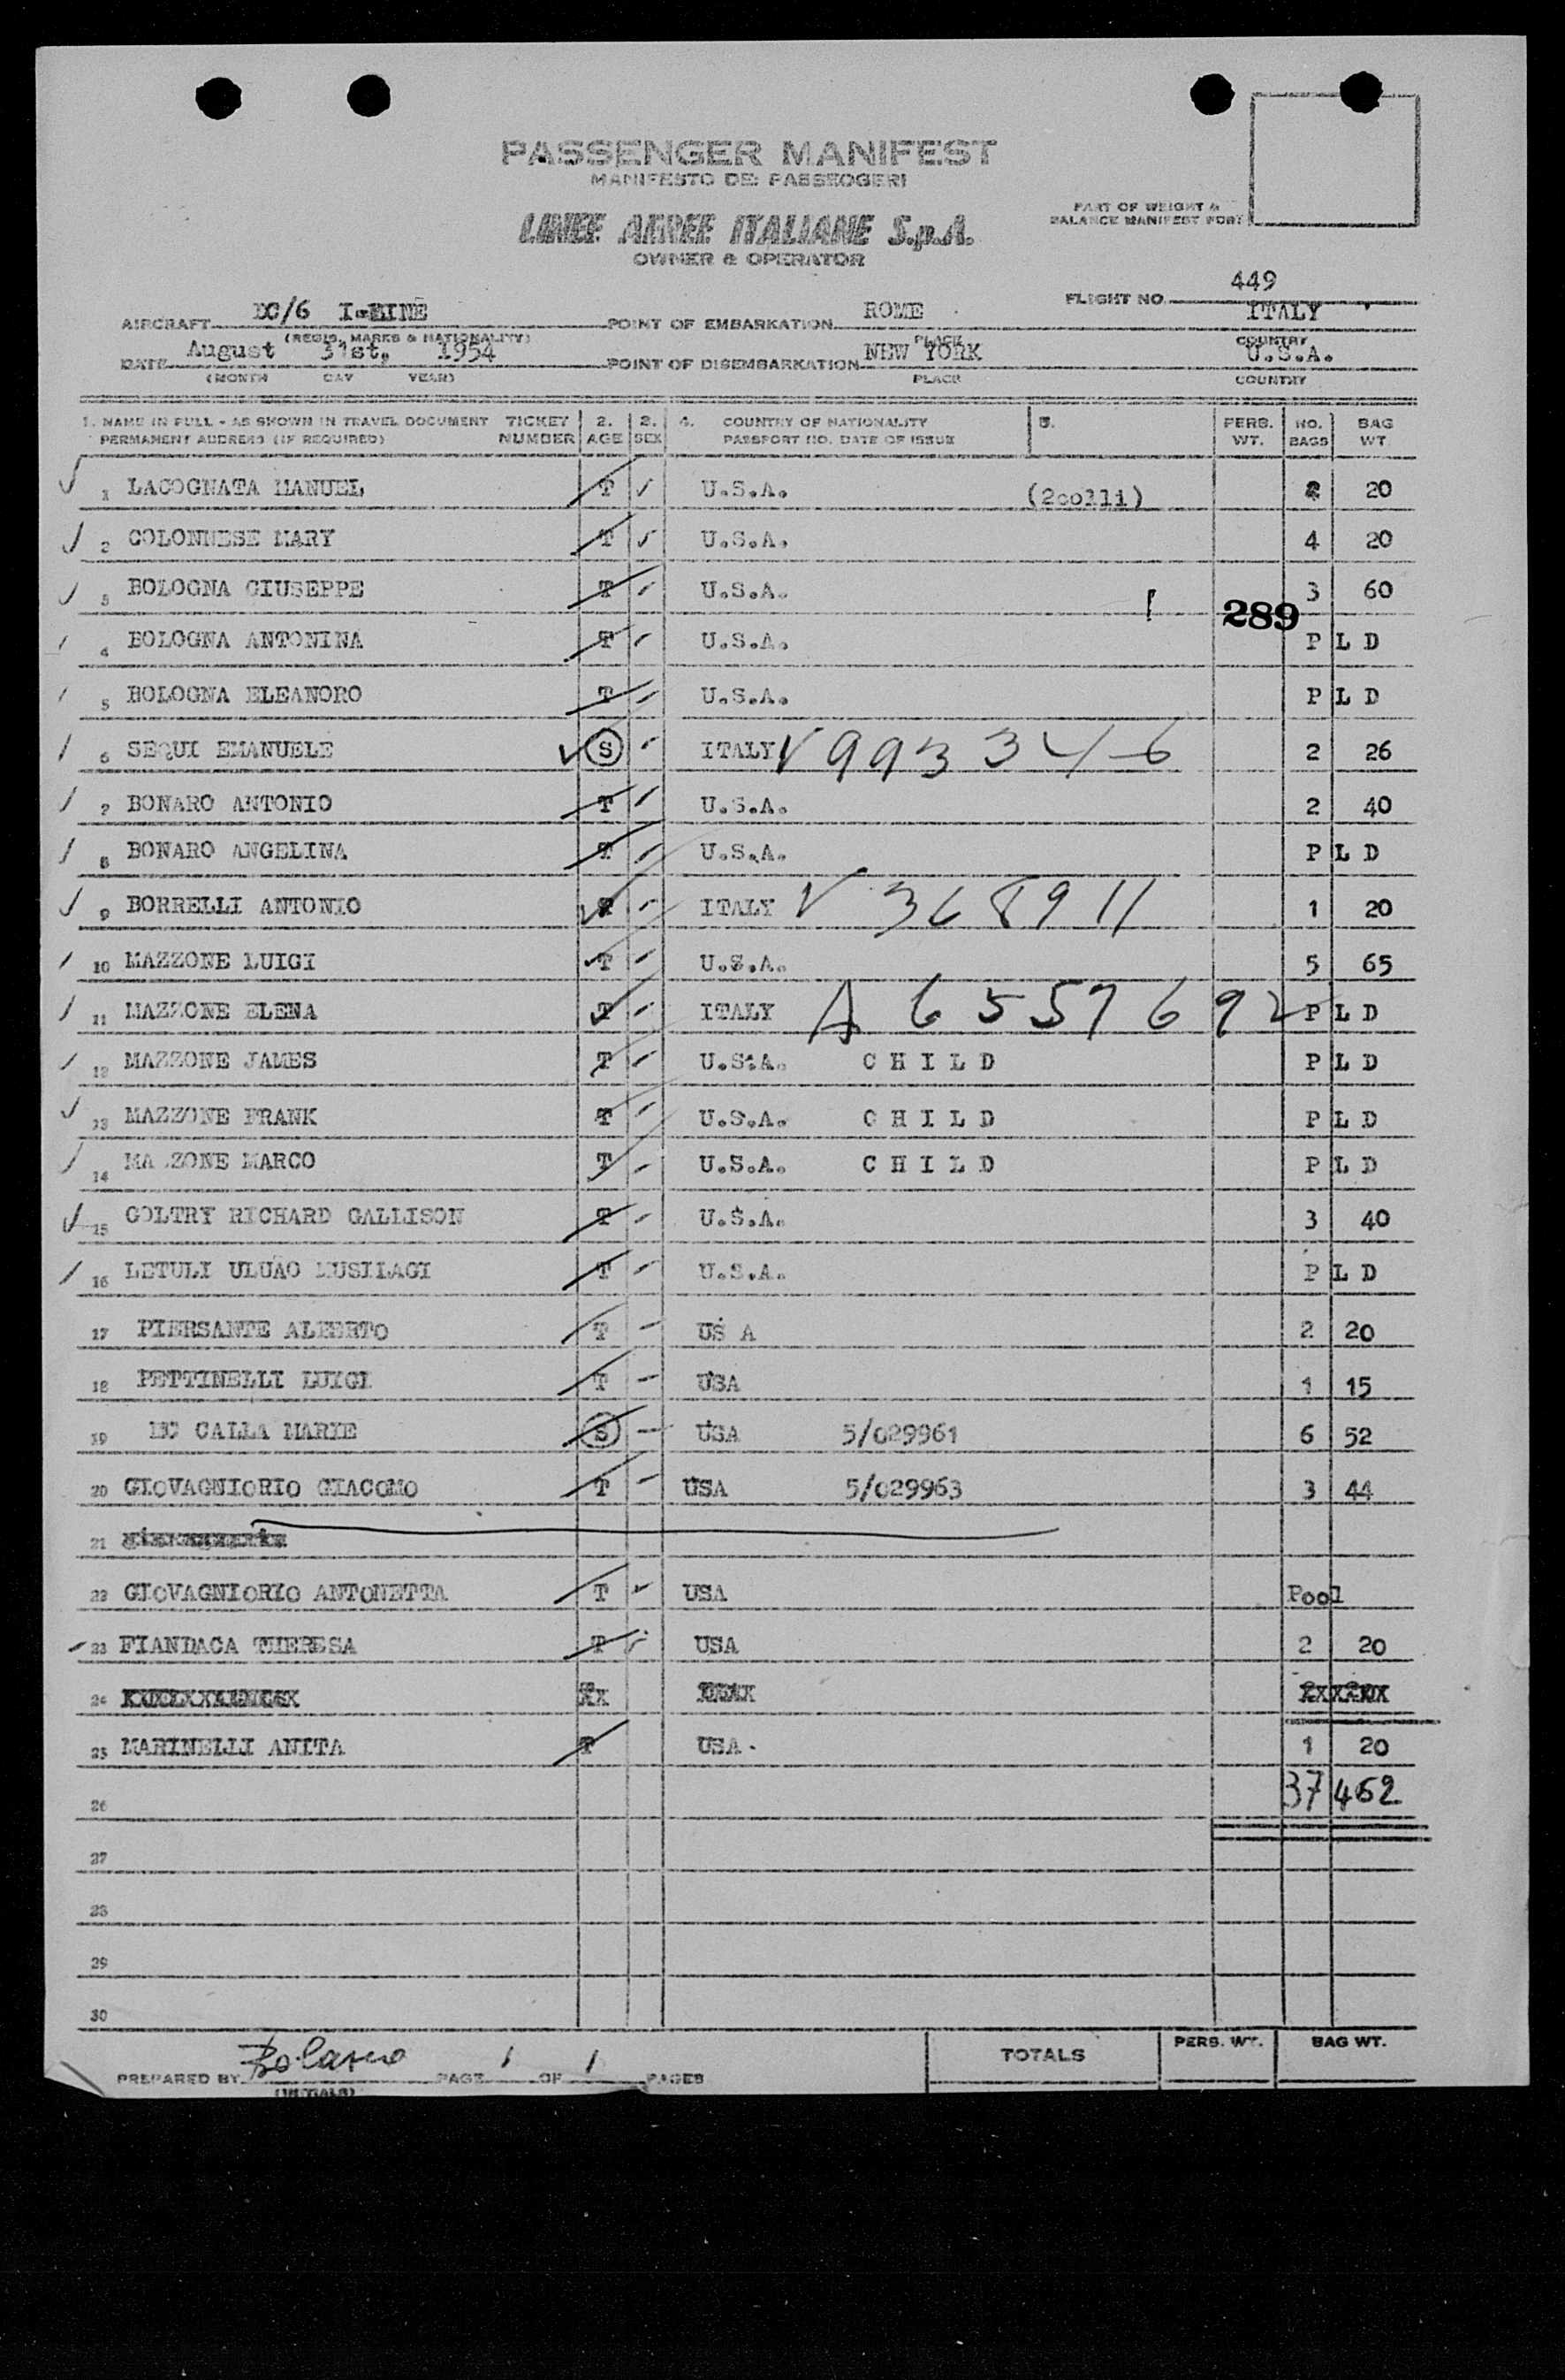 PASSENGER MANIFEST
MANIFESTO DEI PASSEGGERI
LINEE AEREE ITALIANE S.p.A.
OWNER & OPERATOR
PART OF WEIGHT &
BALANCE MANIFEST FORM
FLIGHT NO. 449
AIRCRAFT DC/6 I-LINE POINT OF EMBARKATION ROME ITALY
(REGIS. MARKS & NATIONALITY) PLACE COUNTRY
DATE August 31st, 1954 POINT OF DISEMBARKATION NEW YORK U.S.A.
(MONTH DAY YEAR) PLACE COUNTRY
1. NAME IN FULL - AS SHOWN IN TRAVEL DOCUMENT TICKET 2. 3. 4. COUNTRY OF NATIONALITY 5. PERS. NO. BAG
PERMANENT ADDRESS (IF REQUIRED) NUMBER AGE SEX PASSPORT NO. DATE OF ISSUE WT. BAGS WT
1 LACOGNATA MANUEL T U.S.A. (2colli) 20
2 COLONNESE MARY T U.S.A. 4 20
3 BOLOGNA GIUSEPPE T U.S.A. 3 60
289
4 BOLOGNA ANTONINA T U.S.A. P L D
5 BOLOGNA ELEANORO T U.S.A. P L D
6 SEQUI EMANUELE S ITALY V 993346 2 26
7 BONARO ANTONIO T U.S.A. 2 40
8 BONARO ANGELINA T U.S.A. P L D
9 BORRELLI ANTONIO ITALY V 368911 1 20
10 MAZZONE LUIGI T U.S.A. 5 65
11 MAZZONE ELENA T ITALY A 6557692 P L D
12 MAZZONE JAMES T U.S.A. C H I L D P L D
13 MAZZONE FRANK T U.S.A. C H I L D P L D
14 MA ZONE MARCO T U.S.A. C H I L D P L D
15 GOLTRY RICHARD GALLISON T U.S.A. 3 40
16 LETULI ULUAO MUSILAGI T U.S.A. P L D
17 PIERSANTE ALBERTO T US A 2 20
18 PETTINELLI LUIGI T USA 1 15
19 MC CALLA MARYE S USA 5/029961 6 52
20 GIOVAGNIORIO GIACOMO T USA 5/029963 3 44
21
22 GIOVAGNIORIO ANTONETTA T USA Pool
23 FIANDACA THERESA T USA 2 20
24
25 MARINELLI ANITA T USA. 1 20
26 37 462
27
28
29
30
PREPARED BY PAGE 1 OF 1 PAGES TOTALS PERS. WT. BAG WT.
(INITIALS)